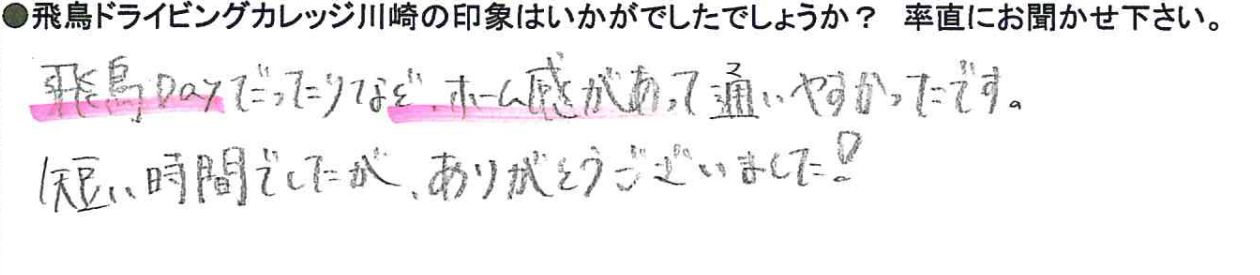 ●飛鳥ドライビングカレッジ川崎の印象はいかがでしたでしょうか？ 率直にお聞かせ下さい。
飛鳥Dayだったりなど、ホーム感があって通いやすかったです。
短い時間でしたが、ありがとうございました!